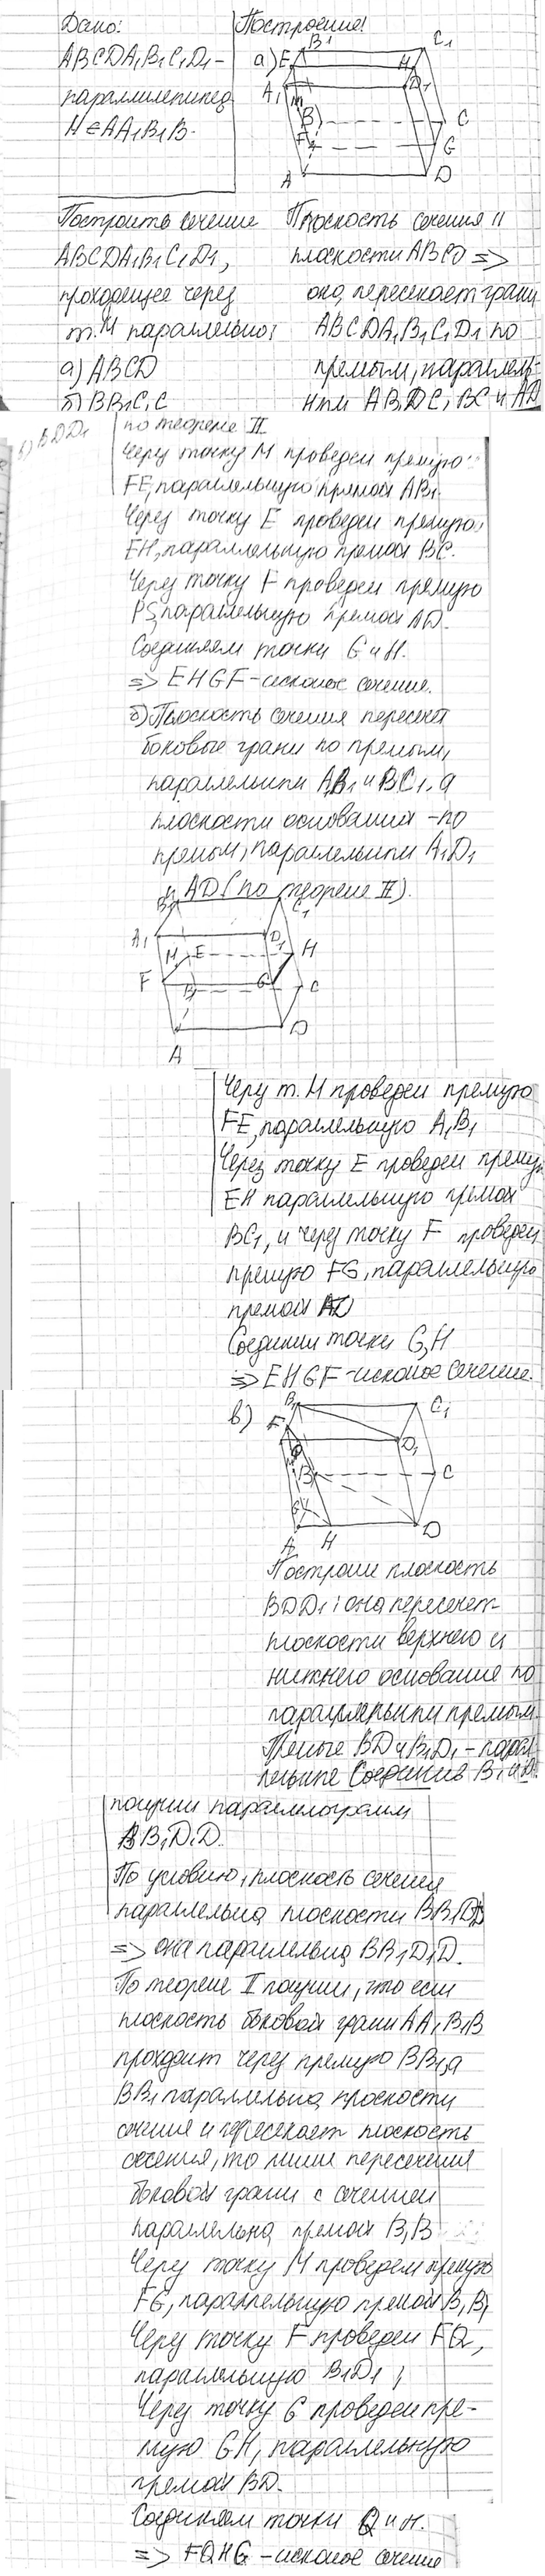 Дано:
ABCDA₁B₁C₁D₁ –
параллилепипед
M ∈ AA₁B₁B.
Построить сечение
ABCDA₁B₁C₁D₁,
проходящее через
т. M параллельно:
а) ABCD
б) BB₁C₁C
в) BDD₁
Построение:
а) E B₁ C₁
A₁ H D₁
M
B C
F G
A D
Плоскость сечения ||
плоскости ABCD =>
она пересекает грани
ABCDA₁B₁C₁D₁ по
прямым, параллель-
ным AB, DC, BC и AD
по теореме II
Через точку M проведем прямую
FE, параллельную прямой AB₁.
Через точку E проведем прямую
EH, параллельную прямой BC.
Через точку F проведем прямую
PS, параллельную прямой AD.
Соединяем точки G и H.
=> EHGF – искомое сечение.
б) Плоскость сечения пересечет
боковые грани по прямым,
параллельным AB₁ и BC₁, а
плоскости основания – по
прямым, параллельным A₁D₁
и AD (по теореме II).
B₁ C₁
A₁ D₁
M E H
F B G C
A D
Через т. M проведем прямую
FE, параллельную A₁B₁
Через точку E проведем прямую
EH параллельную прямой
BC₁, и через точку F проведем
прямую FG, параллельную
прямой AD
Соединим точки G, H
=> EHGF – искомое сечение.
в) B₁ C₁
F
Q D₁
B C
G
A H D
Построим плоскость
BDD₁; она пересечет
плоскости верхнего и
нижнего основание по
параллельным прямым.
BD и B₁D₁ – парал-
лельные Соединив B₁ и D₁
получим параллелограмм
BB₁D₁D.
По условию, плоскость сечения
параллельна плоскости BB₁DD
=> она параллельна BB₁D₁D.
По теореме II получим, что если
плоскость боковой грани AA₁B₁B
проходит через прямую BB₁, а
BB₁ параллельна плоскости
сечения и пересекает плоскость
сечения, то линия пересечения
боковой грани с сечением
параллельна прямой B₁B
Через точку M проведем прямую
FG, параллельную прямой B₁B₁
Через точку F проведем FQ,
параллельную B₁D₁;
Через точку G проведем пря-
мую GH, параллельную
прямой BD.
Соединяем точки Q и H.
=> FQHG – искомое сечение